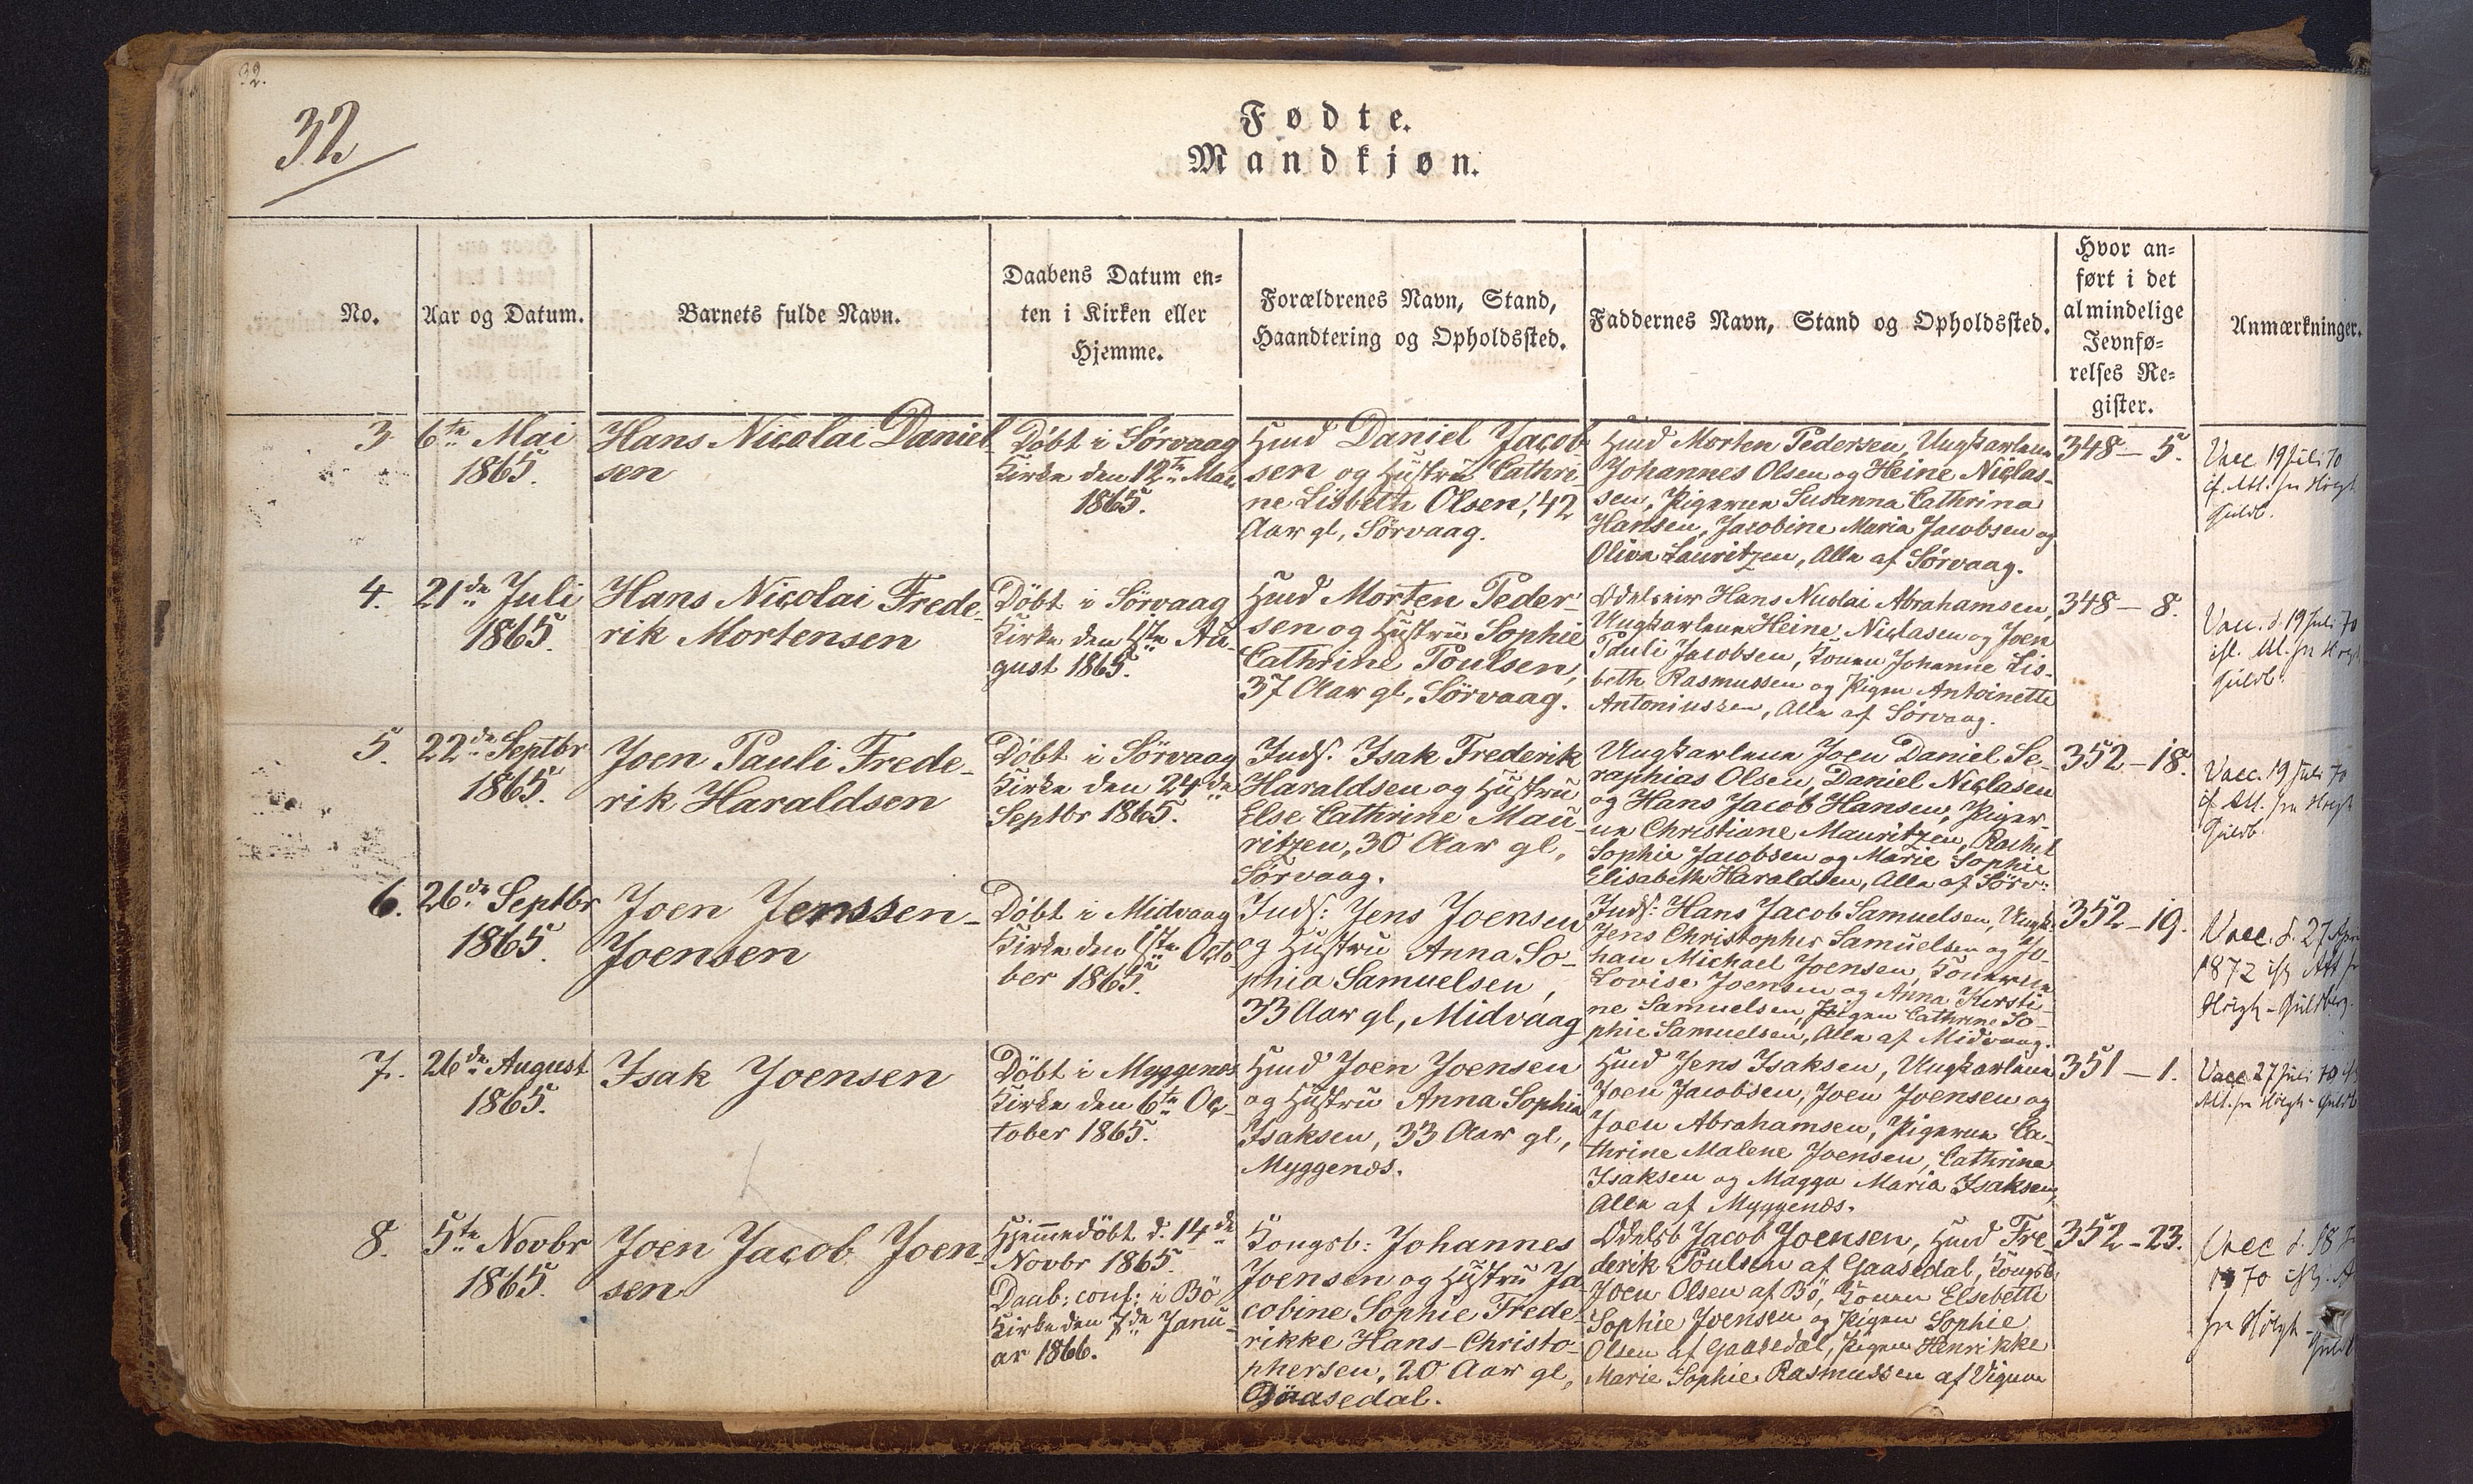 32.
32
Fødte.
Mandkjøn.
No.
Aar og Datum.
Barnets fulde Navn.
Daabens Datum en=
ten i Kirken eller
Hjemme.
Forældrenes Navn, Stand,
Haandtering og Opholdssted.
Faddernes Navn, Stand og Opholdssted.
Hvor an=
ført i det
almindelige
Jevnfø=
relses Re=
gister.
Anmærkninger.
3
6te Mai
1865.
Hans Nicolai Daniel
sen
Döbt i Sörvaag
Kirke den 12te Mai
1865.
Hmd Daniel Jacob
sen og Hustru Cathri
ne Lisbeth Olsen, 42
Aar gl, Sörvaag.
Hmd Morten Pedersen, Ungkarlene
Johannes Olsen og Heine Niclas-
sen, Pigerne Susanna Cathrina
Hansen, Jacobine Maria Jacobsen og
Oliva Lauritzen, Alle af Sörvaag.
348 – 5.
Vacc 19 Juli 70
if. Att. fra Hörgh
Guldb.
4.
21de Juli
1865.
Hans Nicolai Frede-
rik Mortensen
Döbt i Sörvaag
Kirke den 1ste Au-
gust 1865.
Hmd Morten Peder-
sen og Hustru Sophie
Cathrine Poulsen,
37 Aar gl, Sörvaag.
Hans Nicolai Abrahamsen,
Ungkarlene Heine Niclasen og Joen
Pauli Jacobsen, Konen Johanne Lis-
beth Rasmussen og Pigen Antoinette
Antoniussen, Alle af Sörvaag.
348 – 8.
Vacc. d. 19 Juli 70
Att. fra
Guldb.
5.
22de Septbr
1865.
Joen Pauli Frede-
rik Haraldsen
Döbt i Sörvaag
Kirke den 24de
Septbr 1865.
Inds: Isak Frederik
Haraldsen og Hustru
Else Cathrine Mau-
ritzen, 30 Aar gl,
Sörvaag.
Ungkarlene Joen Daniel Se-
raphias Olsen, Daniel Niclasen
og Hans Jacob Hansen, Piger-
ne Christiane Mauritzen, Rachel
Sophie Jacobsen og Marie Sophie
Elisabeth Haraldsen, Alle af Sörv:
352 – 18.
Vacc. 19 Juli 70
if Att. fra Hörgh
Guldb.
6.
26de Septbr
1865.
Joen Jenssen-
Joensen
Döbt i Midvaag
Kirke den 1ste Octo-
ber 1865.
Inds: Jens Joensen
og Hustru Anna So-
phia Samuelsen,
33 Aar gl, Midvaag
Inds: Hans Jacob Samuelsen, Ungk:
Jens Christopher Samuelsen og Jo-
han Michael Joensen, Konerne
Lovise Joensen og Anna Kirsti-
ne Samuelsen, Pigen Cathrine So-
phie Samuelsen, Alle af Midvaag.
352 – 19.
Vacc. d. 27 April
1872 Att fr
Hörgh-Guldberg.
7.
26de August
1865.
Isak Joensen
Döbt i Myggenæs
Kirke den 6te Oc-
tober 1865.
Hmd Joen Joensen
og Hustru Anna Sophia
Isaksen, 33 Aar gl,
Myggenæs.
Hmd Jens Isaksen, Ungkarlene
Joen Jacobsen, Joen Joensen og
Joen Abrahamsen, Pigerne Ca-
thrine Malene Joensen, Cathrine
Isaksen og Magga Maria Isaksen,
Alle af Myggenæs.
351 – 1.
Vacc 27 Juli 70
Att. fra Hörgh-Guldb
8.
5te Novbr
1865.
Joen Jacob Joen-
sen
Hjemmedöbt d. 14de
Novbr 1865.
Daab: conf: i Bö
Kirke den 7de Janu-
ar 1866.
Kongsb: Johannes
Joensen og Hustru Ja
cobine Sophie Frede-
rikke Hans-Christo-
phersen, 20 Aar gl,
Gaasedal.
Odelsb Jacob Joensen, Hmd Fre-
derik Poulsen af Gaasedal, Kongsb
Joen Olsen af Bö, Konen Elsebeth
Sophie Joensen og Pigen Sophie
Olsen af Gaasedal, Pigen Henrikke
Marie Sophie Rasmussen af Vigerne
352 – 23.
Vacc d. 18
1870
fra Hörgh-
Guldb